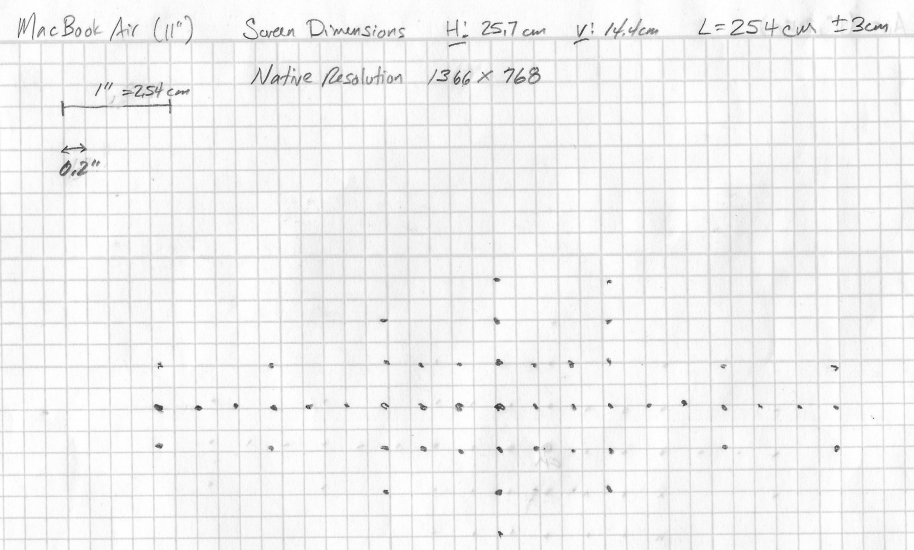 MacBook Air (11") Screen Dimensions H: 25.7 cm V: 14.4 cm L = 254 cm ± 3 cm
Native Resolution 1366 × 768
1" = 2.54 cm
0.2"